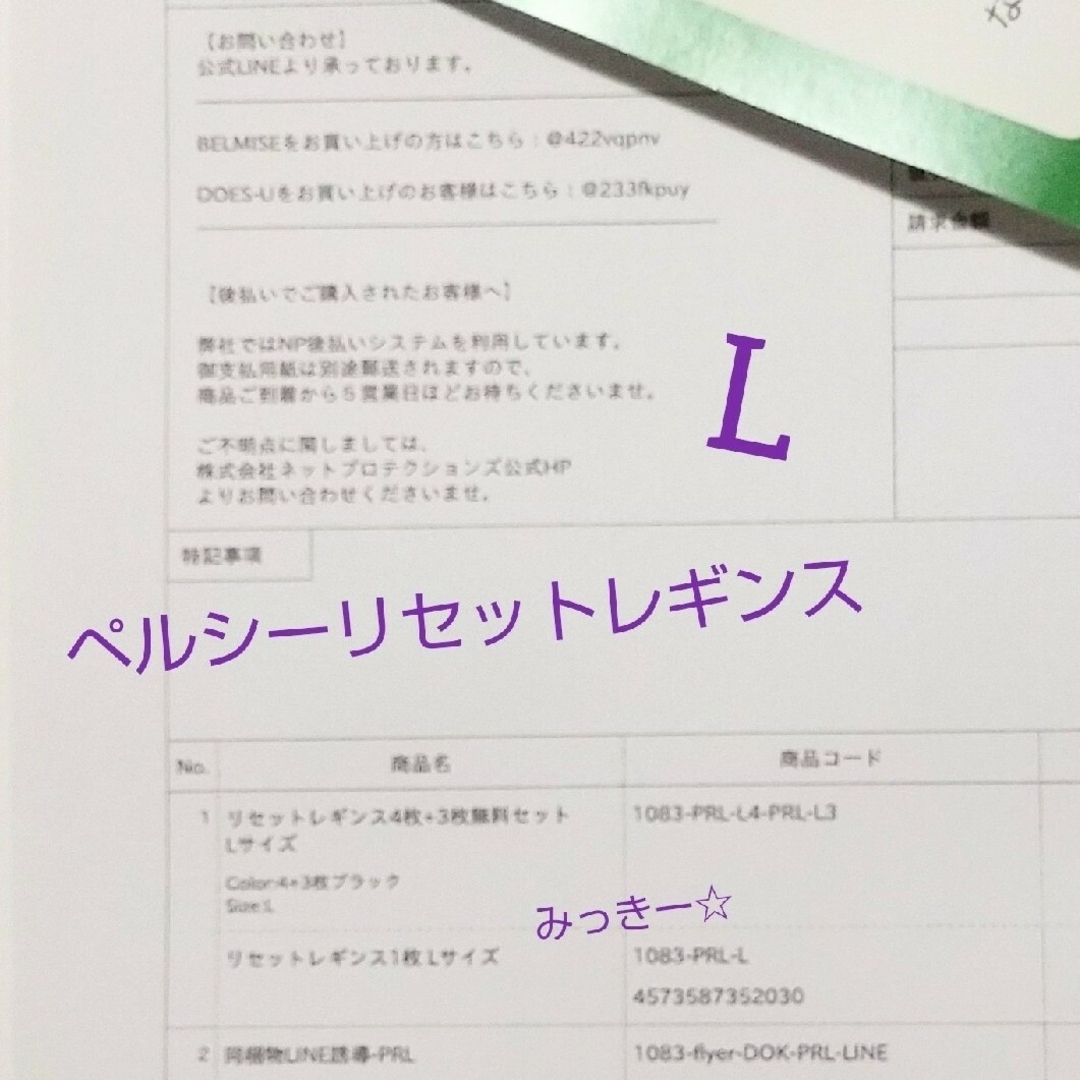 【お問い合わせ】
公式LINEより承っております。
BELMISEをお買い上げの方はこちら：@422vqpnv
DOES-Uをお買い上げのお客様はこちら：@233fkpuy
請求金額
【後払いでご購入されたお客様へ】
弊社ではNP後払いシステムを利用しています。
御支払用紙は別途郵送されますので、
商品ご到着から５営業日ほどお待ちくださいませ。
L
ご不明点に関しましては、
株式会社ネットプロテクションズ公式HP
よりお問い合わせくださいませ。
特記事項
ペルシーリセットレギンス
No. 商品名 商品コード
1 リセットレギンス4枚+3枚無料セット 1083-PRL-L4-PRL-L3
Lサイズ
Color:4+3枚ブラック
Size:L
みっきー☆
リセットレギンス1枚 Lサイズ 1083-PRL-L
4573587352030
2 同梱物LINE誘導-PRL 1083-flyer-DOK-PRL-LINE